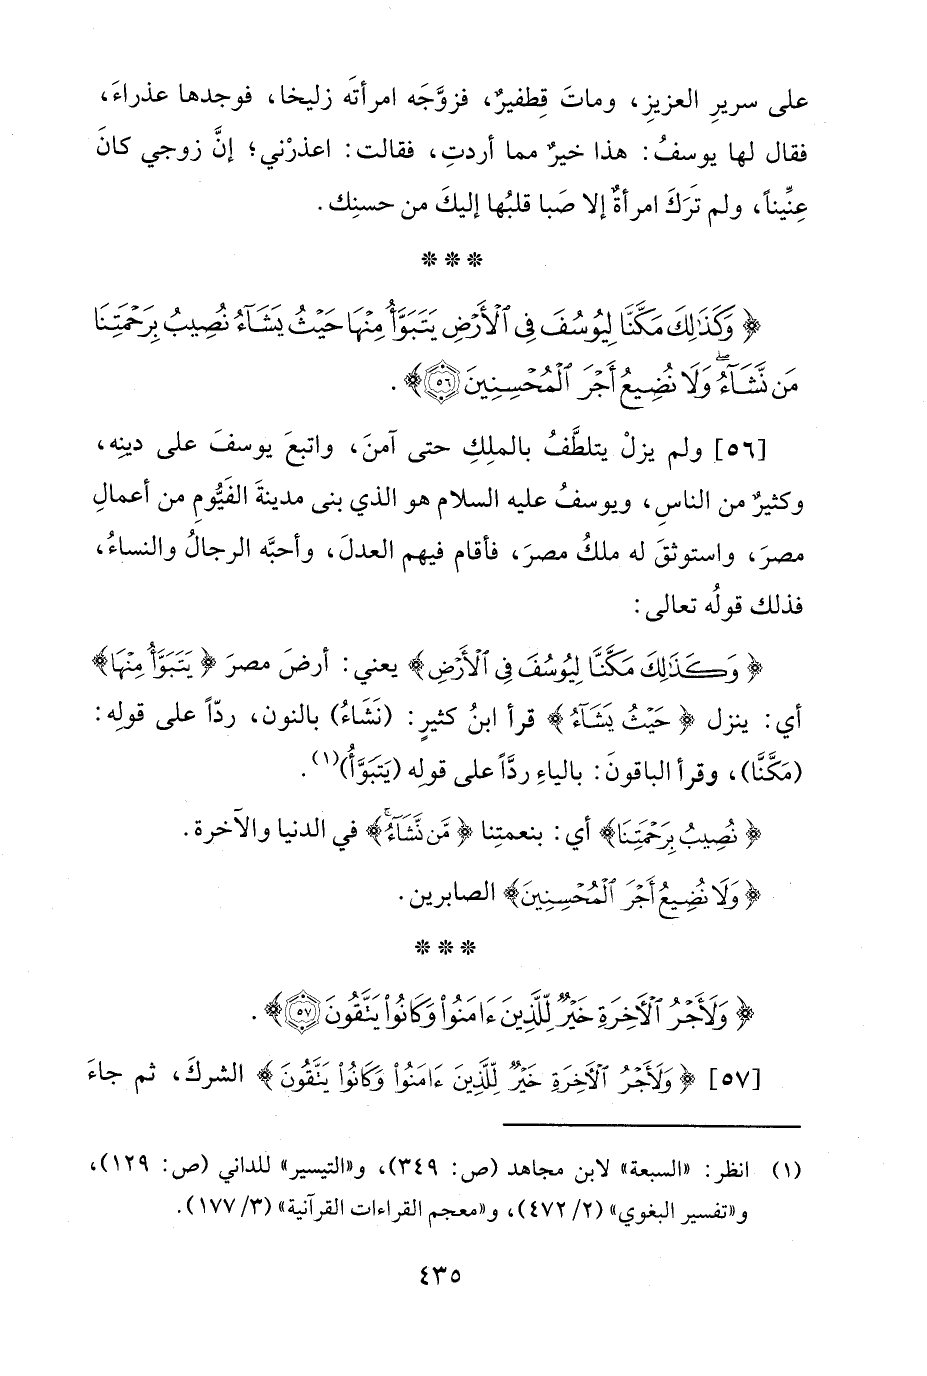 على سريرِ العزيزِ، وماتَ قِطفيرٌ، فزوَّجَه امرأتَه زليخا، فوجدها عذراءَ،
فقال لها يوسفُ: هذا خيرٌ مما أردتِ، فقالت: اعذرْني؛ إنَّ زوجي كانَ
عِنِّيناً، ولم تَرَكَ امرأةٌ إلا صَبا قلبُها إليكَ من حسنِك.
* * *
﴿ وَكَذَٰلِكَ مَكَّنَّا لِيُوسُفَ فِي ٱلْأَرْضِ يَتَبَوَّأُ مِنْهَا حَيْثُ يَشَآءُ نُصِيبُ بِرَحْمَتِنَا
مَن نَّشَآءُۖ وَلَا نُضِيعُ أَجْرَ ٱلْمُحْسِنِينَ ٥٦﴾.
[٥٦] ولم يزلْ يتلطَّفُ بالملِكِ حتى آمنَ، واتبعَ يوسفَ على دينِه،
وكثيرٌ من الناسِ، ويوسفُ عليه السلام هو الذي بنى مدينةَ الفَيُّومِ من أعمالِ
مصرَ، واستوثقَ له ملكُ مصرَ، فأقام فيهم العدلَ، وأحبَّه الرجالُ والنساءُ،
فذلك قولُه تعالى:
﴿ وَكَذَٰلِكَ مَكَّنَّا لِيُوسُفَ فِي ٱلْأَرْضِ ﴾ يعني: أرضَ مصرَ ﴿ يَتَبَوَّأُ مِنْهَا ﴾
أي: ينزل ﴿ حَيْثُ يَشَآءُ ﴾ قرأ ابنُ كثيرٍ: (نَشَاءُ) بالنون، ردّاً على قولِه:
(مَكَّنَّا)، وقرأ الباقونَ: بالياءِ ردَّاً على قولِه (يَتَبَوَّأُ)(١).
﴿ نُصِيبُ بِرَحْمَتِنَا﴾ أي: بنعمتِنا ﴿ مَّن نَّشَآءُۚ﴾ في الدنيا والآخرة.
﴿ وَلَا نُضِيعُ أَجْرَ ٱلْمُحْسِنِينَ﴾ الصابرين.
* * *
﴿ وَلَأَجْرُ ٱلْأَخِرَةِ خَيْرٌ لِّلَّذِينَ ءَامَنُواْ وَكَانُواْ يَتَّقُونَ ٥٧﴾.
[٥٧] ﴿ وَلَأَجْرُ ٱلْأَخِرَةِ خَيْرٌ لِّلَّذِينَ ءَامَنُواْ وَكَانُواْ يَتَّقُونَ ﴾ الشركَ، ثم جاءَ
(١) انظر: «السبعة» لابن مجاهد (ص: ٣٤٩)، و«التيسير» للداني (ص: ١٢٩)،
و«تفسير البغوي» (٢/ ٤٧٢)، و«معجم القراءات القرآنية» (٣/ ١٧٧).
٤٣٥